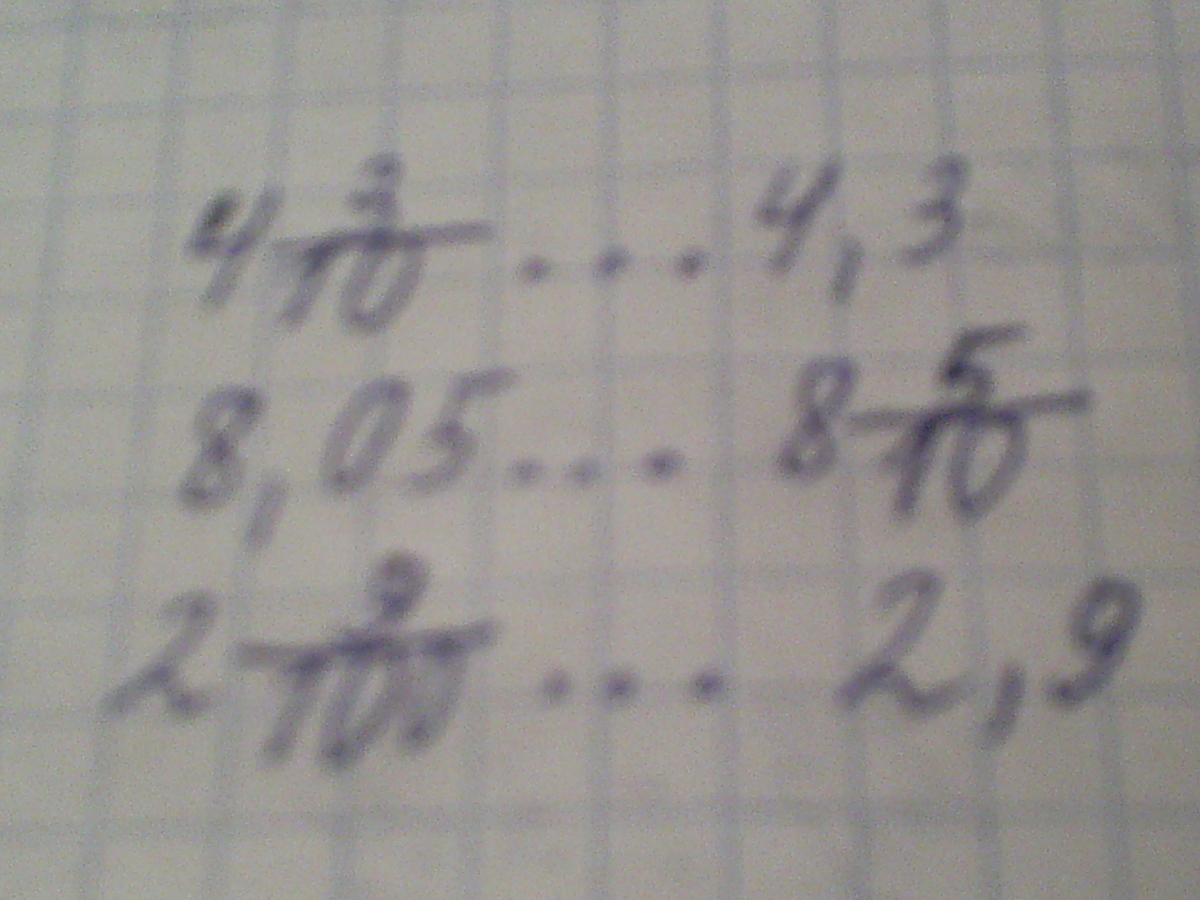 4 3/10 ... 4,3
8,05 ... 8 5/10
2 9/100 ... 2,9